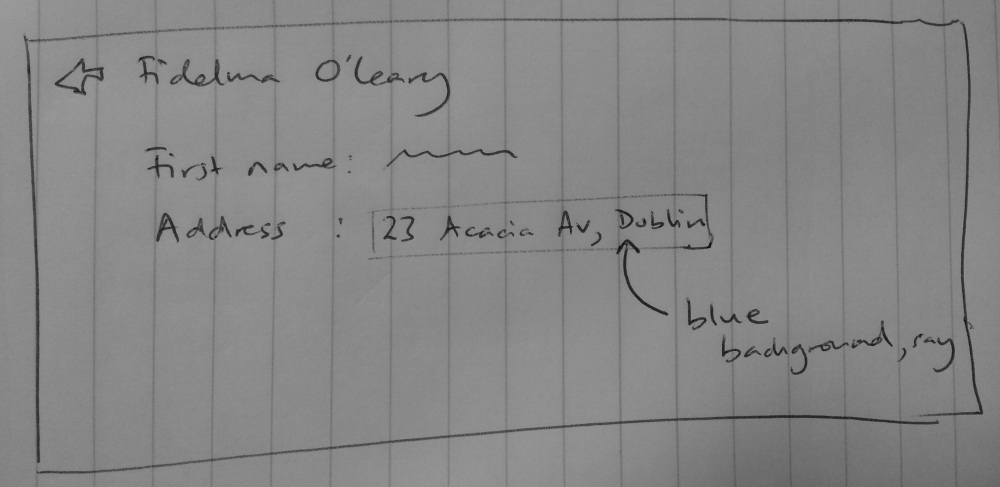 Fidelma O'Leary
First name:
Address : 23 Acacia Av, Dublin
blue
background, say